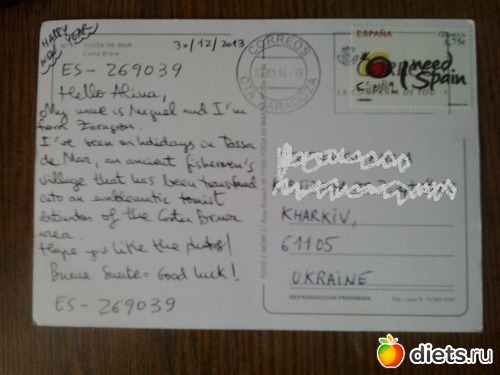 HAPPY
NEW YEAR
TOSSA DE MAR
Costa Brava
30/12/2013
ES-269039
Hello Alina,
My name is Miguel and I'm
from Zaragoza.
I've been on holidays in Tossa
de Mar, an ancient fishermen's
village that has been transformed
into an emblematic tourist
of the Costa Brava
area.
Hope you like the photos!
Buena Suerte = Good luck!
ES-269039
CORREOS
CTA ZARAGOZA
ESPAÑA
CORREOS
0,75€
I need
Spain
KHARKIV,
61105
UKRAINE
REPRODUCCION PROHIBIDA
diets.ru